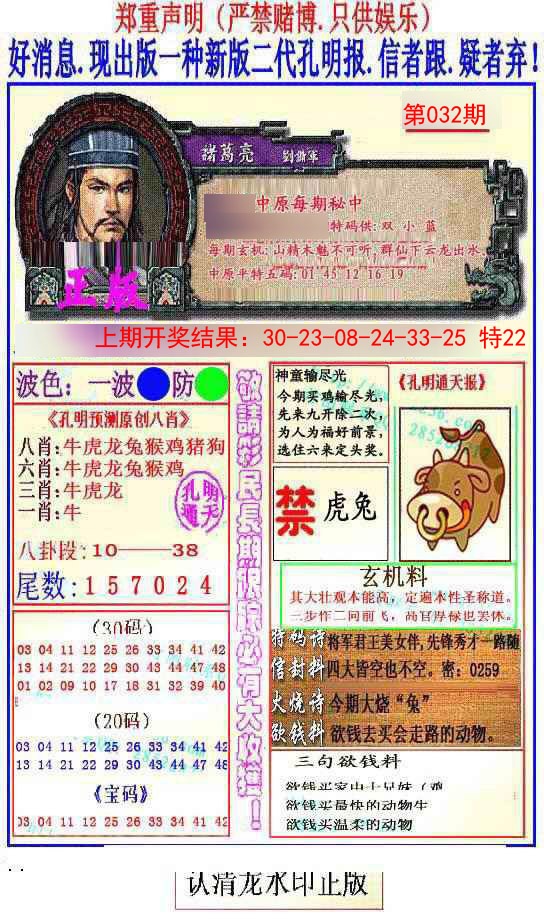 郑重声明（严禁赌博.只供娱乐）
好消息.现出版一种新版二代孔明报.信者跟.疑者弃！
第032期
諸葛亮
中原每期秘中
特码供:双 小 蓝
每期玄机:山精木魅不可听,群仙下云龙出水。
中原平特五码:01 45 12 16 19
正版
上期开奖结果：30-23-08-24-33-25 特22
波色：一波 防
《孔明预测原创八肖》
八肖:牛虎龙兔猴鸡猪狗
六肖:牛虎龙兔猴鸡
三肖:牛虎龙
一肖:牛
孔明
通天
八卦段:10——38
尾数:157024
(30码)
03 04 11 12 25 26 33 34 41 42
13 14 21 22 29 30 43 44 47 48
01 02 09 10 17 18 31 32 39 40
(20码)
03 04 11 12 25 26 33 34 41 42
13 14 21 22 29 30 43 44 47 48
《宝码》
03 04 11 12 25 26 33 34 41 42
敬請彩民長期跟踪必有大收獲！
神童输尽光
今期买鸡输尽光,
先来九开除二次,
为人为福好前景,
选住六来定头奖。
《孔明通天报》
禁 虎兔
玄机料
其大壮观本能高，定遍本性圣称道。
三步作二向前飞，高官厚禄也罢休。
特码诗 将军君王美女伴,先锋秀才一路随
信封料 四大皆空也不空。密：0259
火烧诗 今期大烧“兔”
欲钱料 欲钱去买会走路的动物。
三句欲钱料
欲钱买最快的动物生
欲钱买温柔的动物
认清龙水印正版